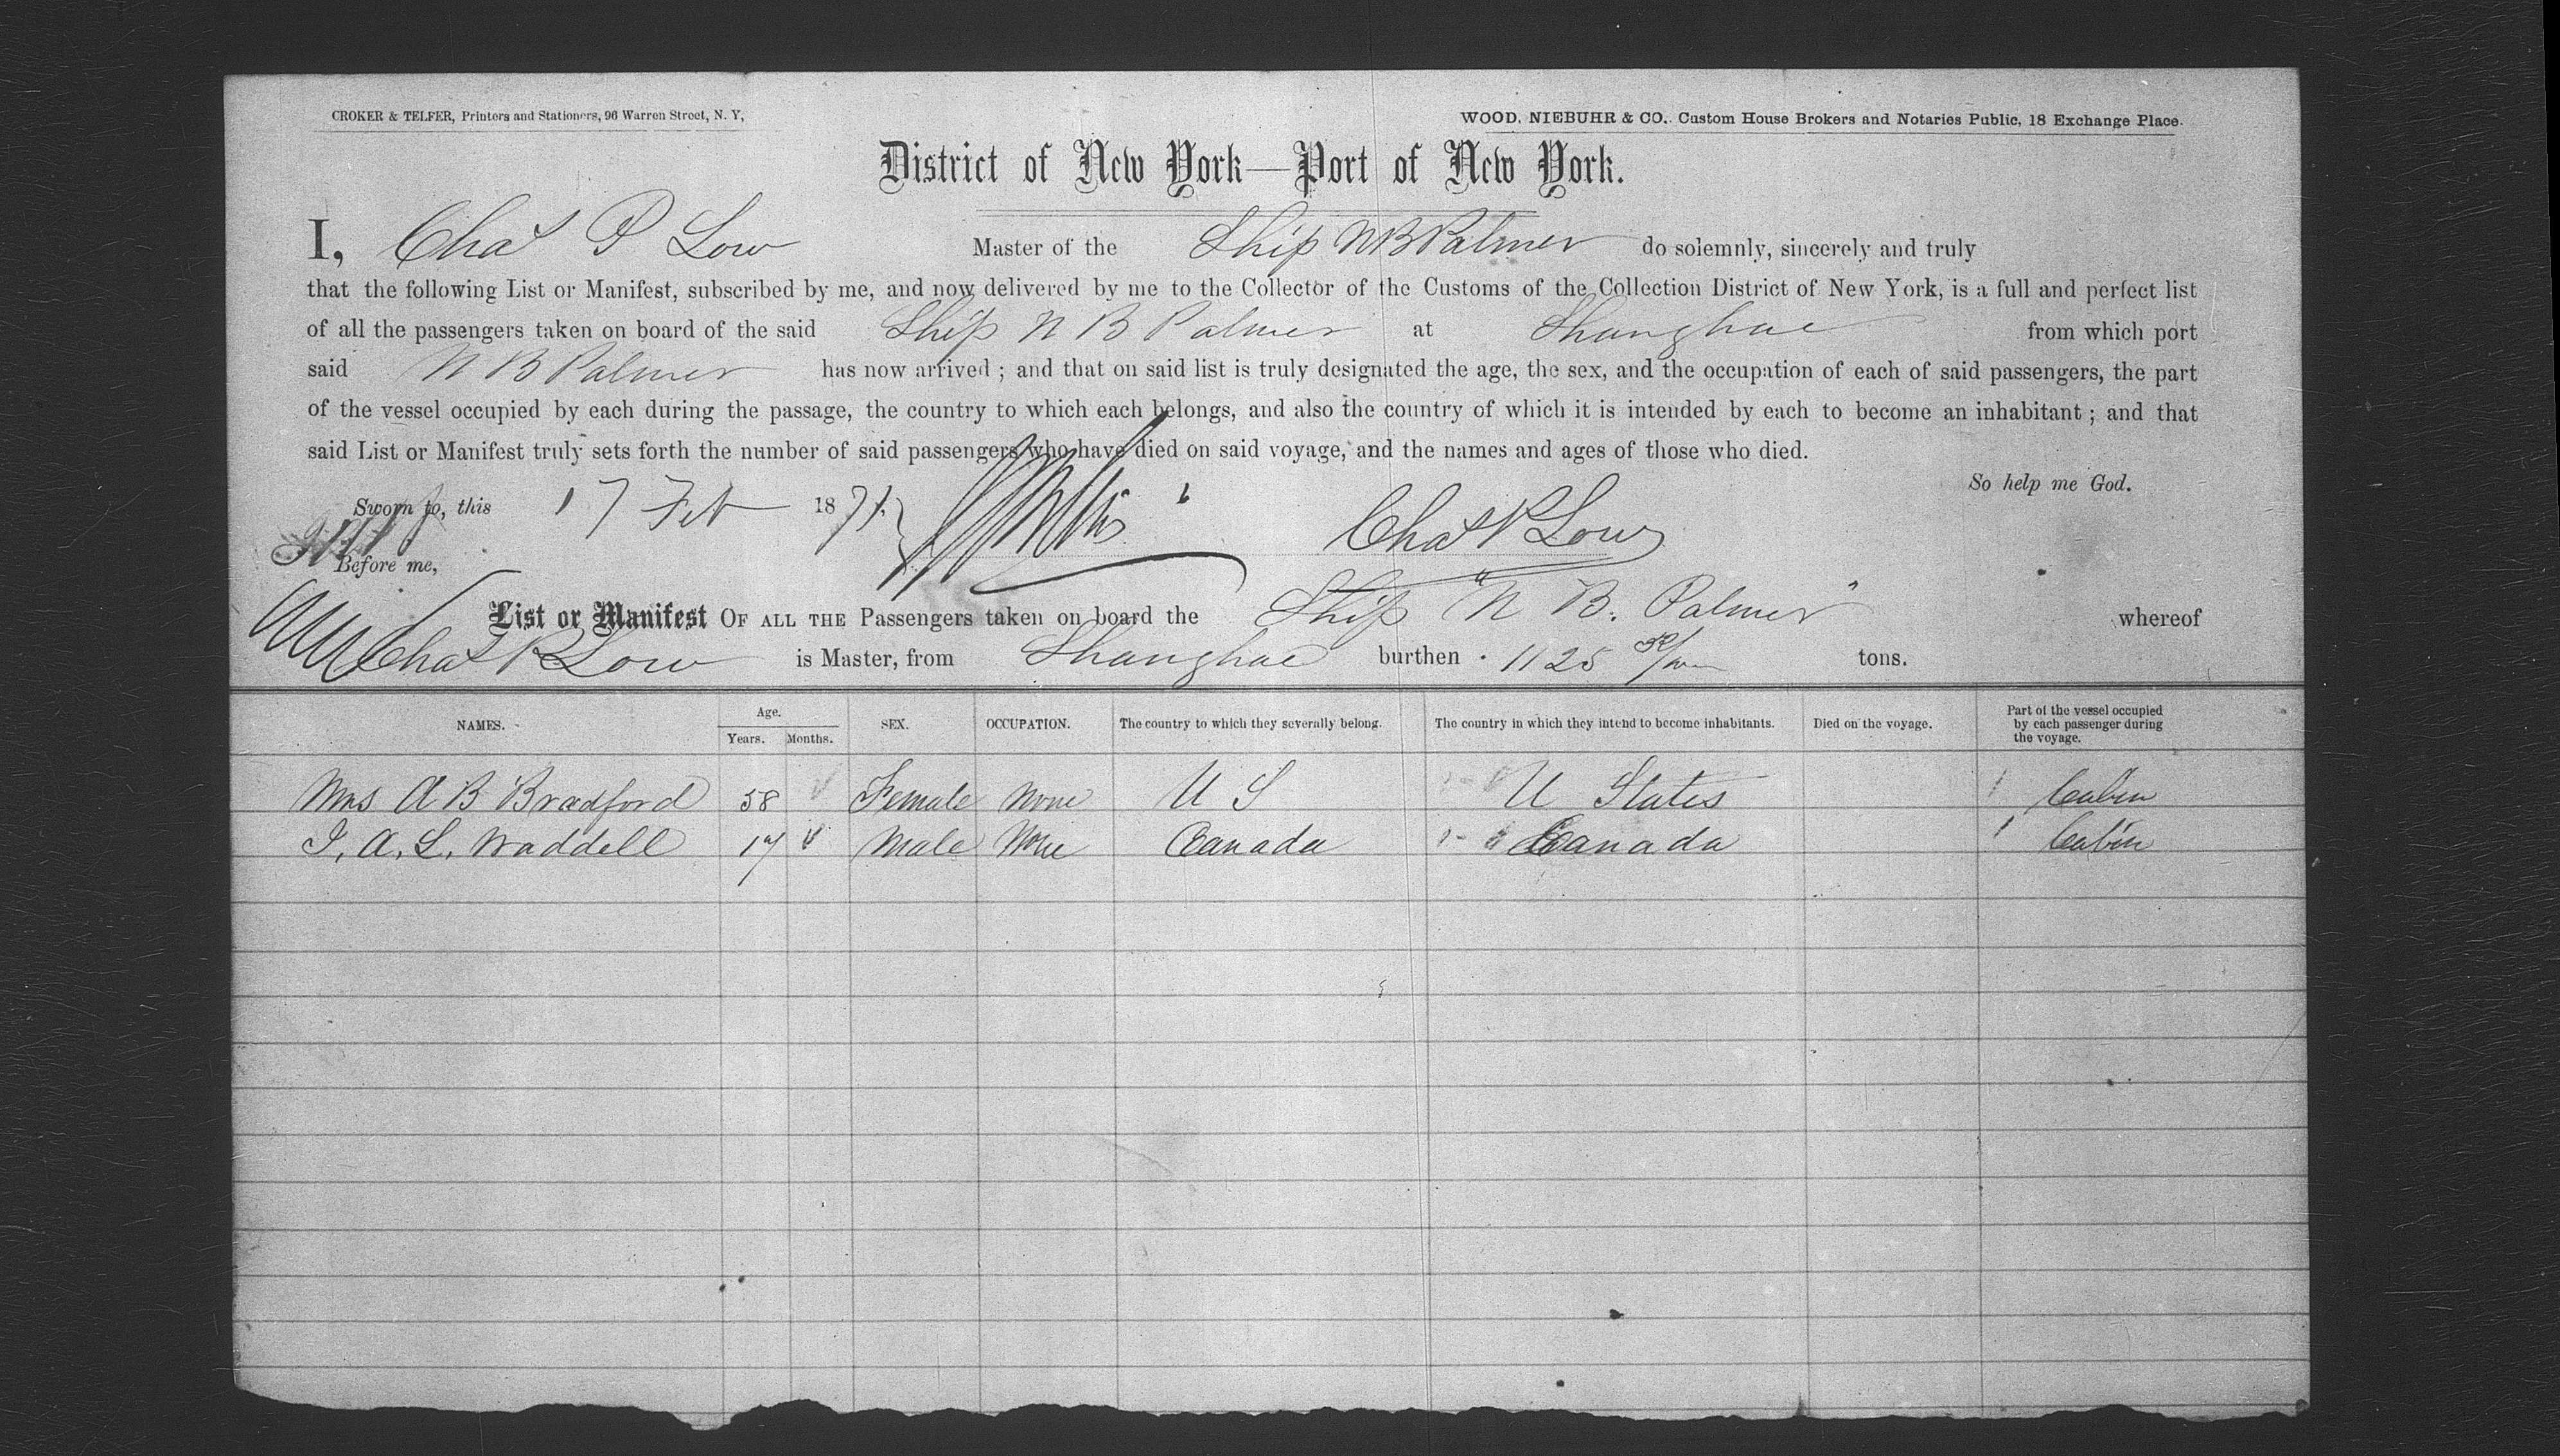 CROKER & TELFER, Printers and Stationers, 96 Warren Street, N. Y,
WOOD, NIEBUHR & CO., Custom House Brokers and Notaries Public, 18 Exchange Place.
District of New York—Port of New York.
I, Chas P Low Master of the Ship N B Palmer do solemnly, sincerely and truly
that the following List or Manifest, subscribed by me, and now delivered by me to the Collector of the Customs of the Collection District of New York, is a full and perfect list
of all the passengers taken on board of the said Ship N B Palmer at Shanghae from which port
said N B Palmer has now arrived; and that on said list is truly designated the age, the sex, and the occupation of each of said passengers, the part
of the vessel occupied by each during the passage, the country to which each belongs, and also the country of which it is intended by each to become an inhabitant; and that
said List or Manifest truly sets forth the number of said passengers who have died on said voyage, and the names and ages of those who died.
So help me God.
Sworn to, this 17 Feb 1871. Chas P Low
Before me,
List or Manifest OF ALL THE Passengers taken on board the Ship "N B. Palmer" whereof
Chas P Low is Master, from Shanghae burthen 1125 tons.
NAMES. Age. Years. Months. SEX. OCCUPATION. The country to which they severally belong. The country in which they intend to become inhabitants. Died on the voyage. Part of the vessel occupied by each passenger during the voyage.
Mrs A B Bradford 58 Female None U S U States Cabin
J. A. L. Waddell 17 Male None Canada Canada Cabin